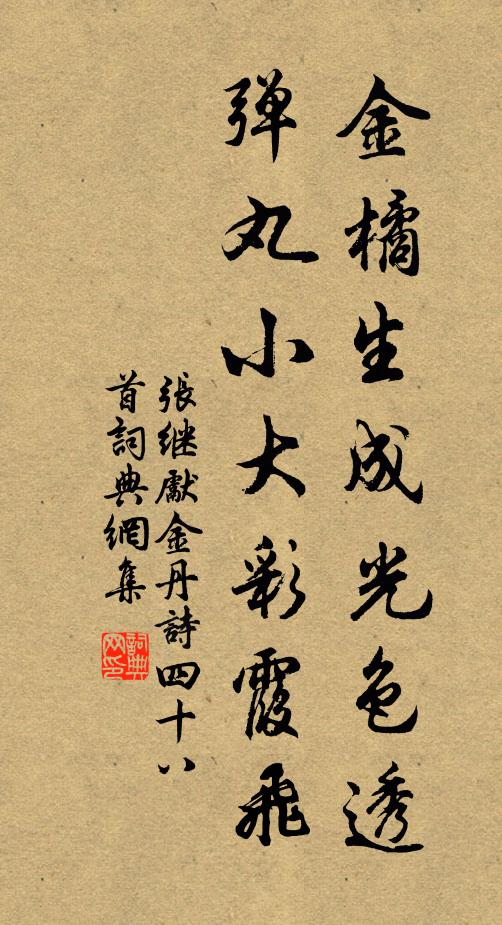 金橘生成光色透
弹丸小大彩霞飛
張继獻金丹詩四十八
首詞典網集
詞典
网印